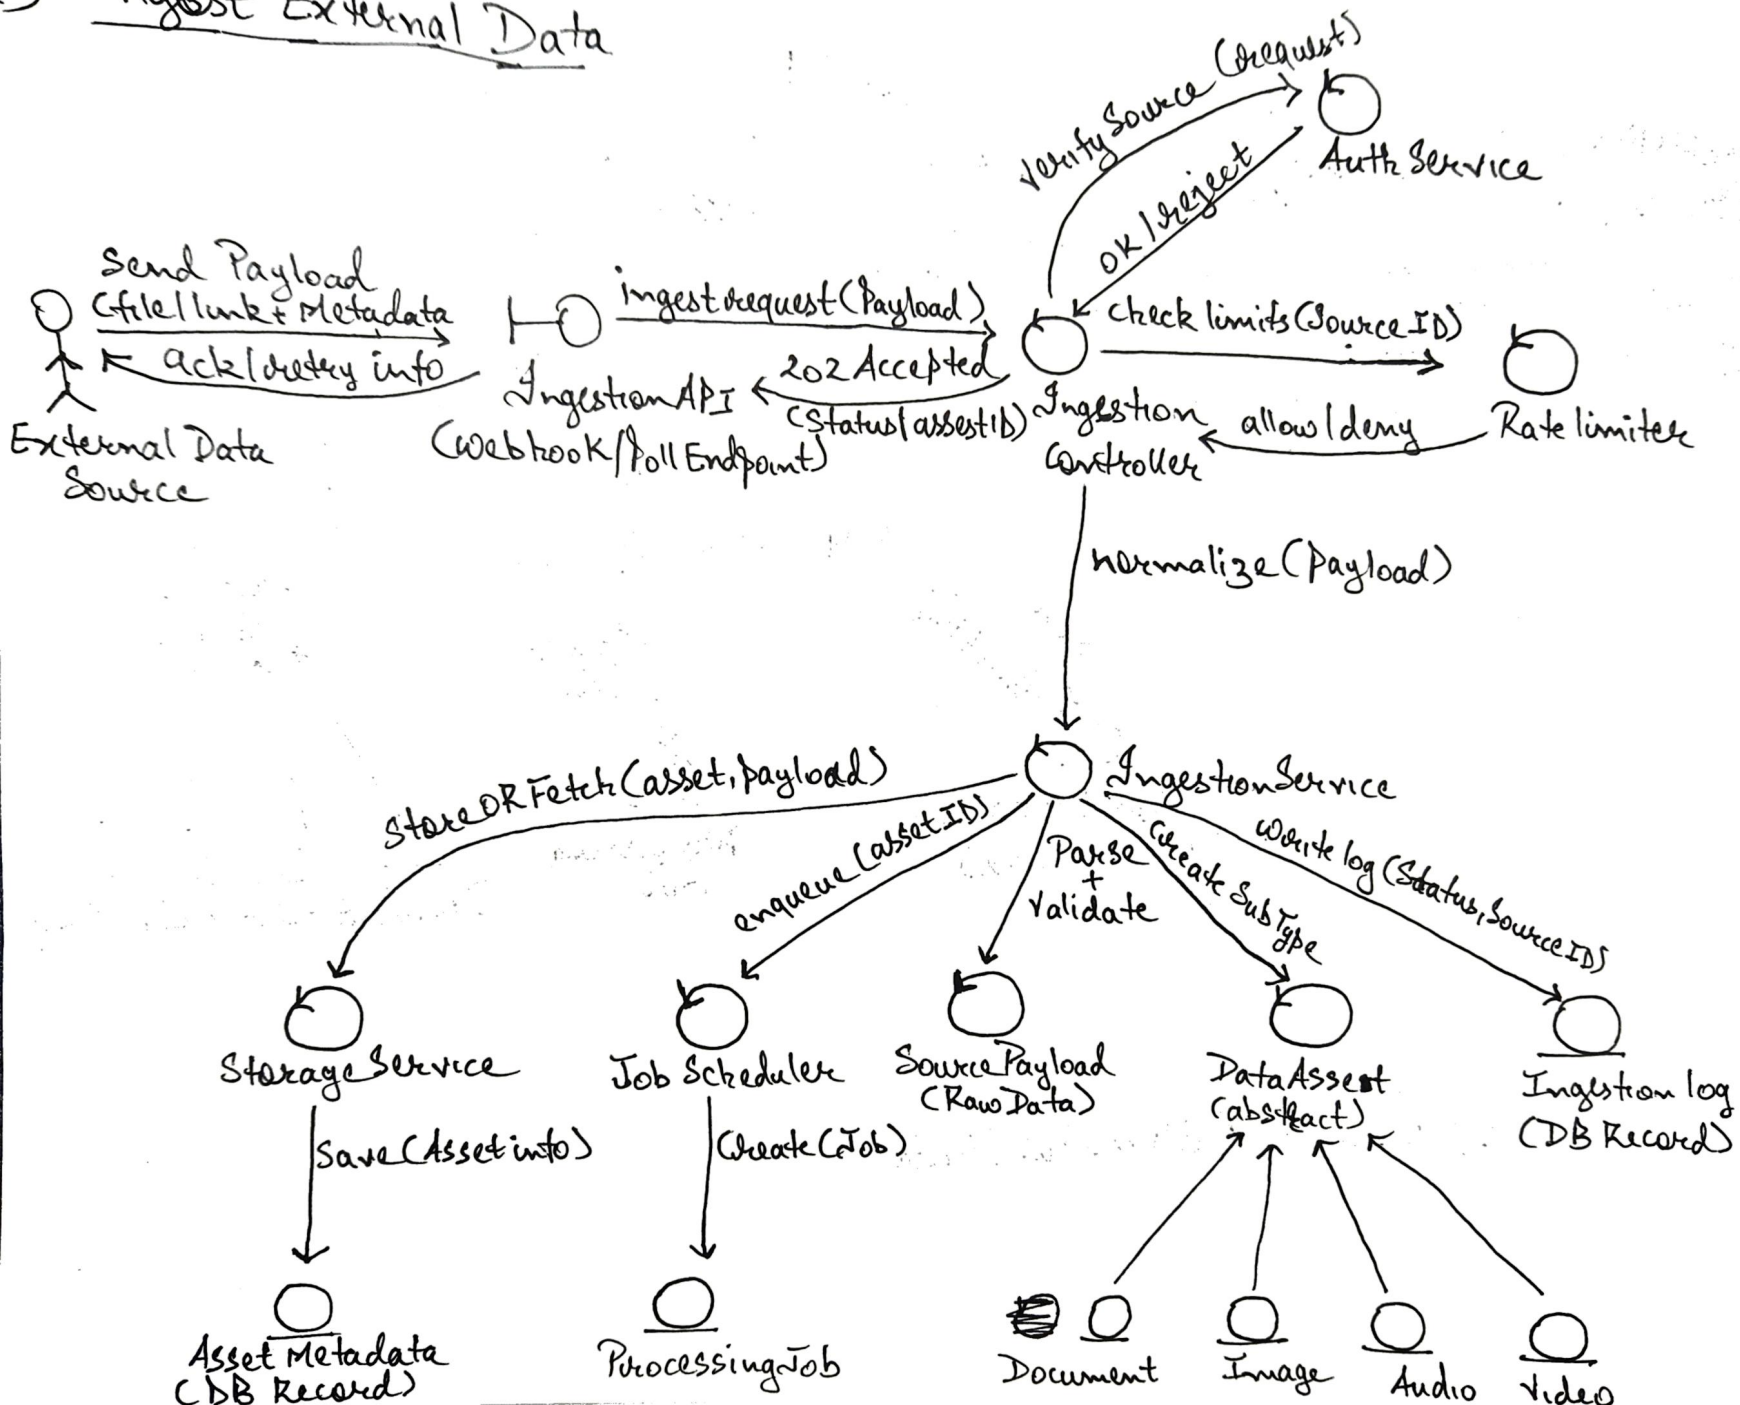 Ingest External Data
verifySource (request)
AuthService
OK/reject
Send Payload
(file/link+Metadata
ack/retry info
External Data
Source
ingestrequest(Payload)
202 Accepted
(Status/assestID)
IngestionAPI
(Webhook/Poll Endpoint)
Ingestion
Controller
Check limits(Source ID)
allow/deny
Rate limiter
normalize(Payload)
IngestionService
StoreORFetch(asset,payload)
enqueue(assetID)
Parse
+
Validate
Create SubType
Write log (Status,SourceID)
StorageService
Job Scheduler
SourcePayload
(RawData)
DataAssest
(abstract)
Ingestion log
(DB Record)
Save(Assetinfo)
Create(Job)
Asset Metadata
(DB Record)
ProcessingJob
Document
Image
Audio
Video